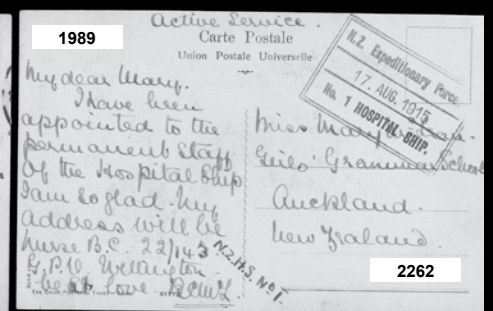 1989
Active Service.
Carte Postale
Union Postale Universelle
N.Z. Expeditionary Force
17. AUG. 1915
No. 1 HOSPITAL SHIP.
My dear Mary.
I have been
appointed to the
permanent Staff
Of the Hospital Ship
I am so glad. My
address will be
Nurse B.C. 22/143
N.Z.H.S. No 1.
G.P.O. Wellington
love
Miss Mary
Girls' Grammar School
Auckland.
New Zealand.
2262